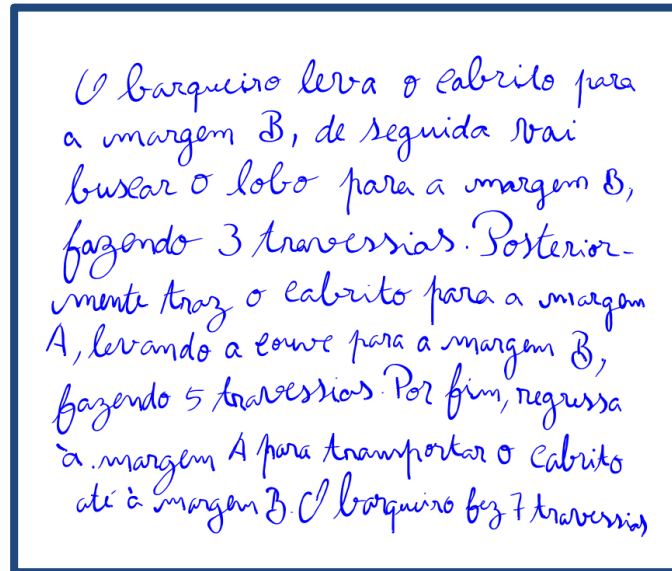 O barqueiro leva o cabrito para
a margem B, de seguida vai
buscar o lobo para a margem B,
fazendo 3 travessias. Posterior-
mente traz o cabrito para a margem
A, levando a couve para a margem B,
fazendo 5 travessias. Por fim, regressa
à margem A para transportar o cabrito
até à margem B. O barqueiro fez 7 travessias